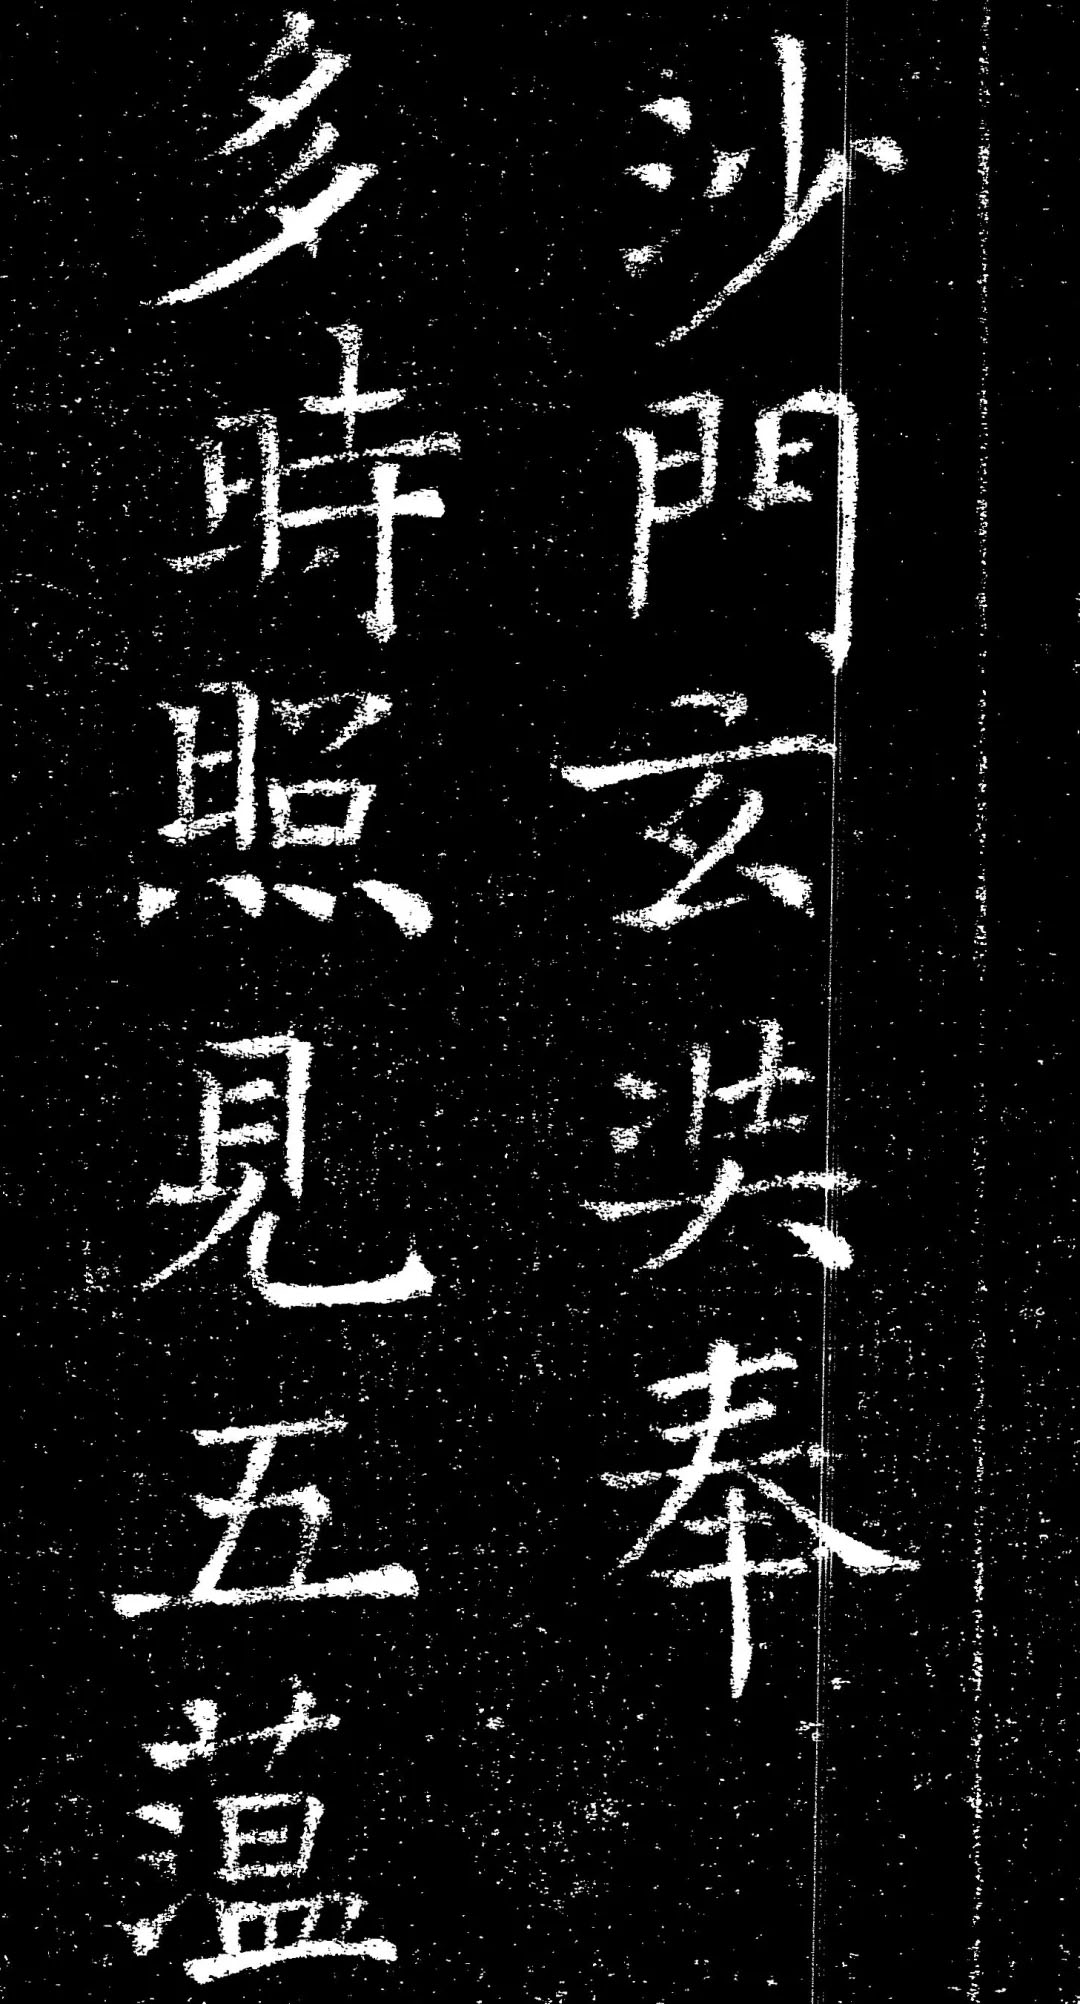 沙門玄奘奉
多時照見五薀